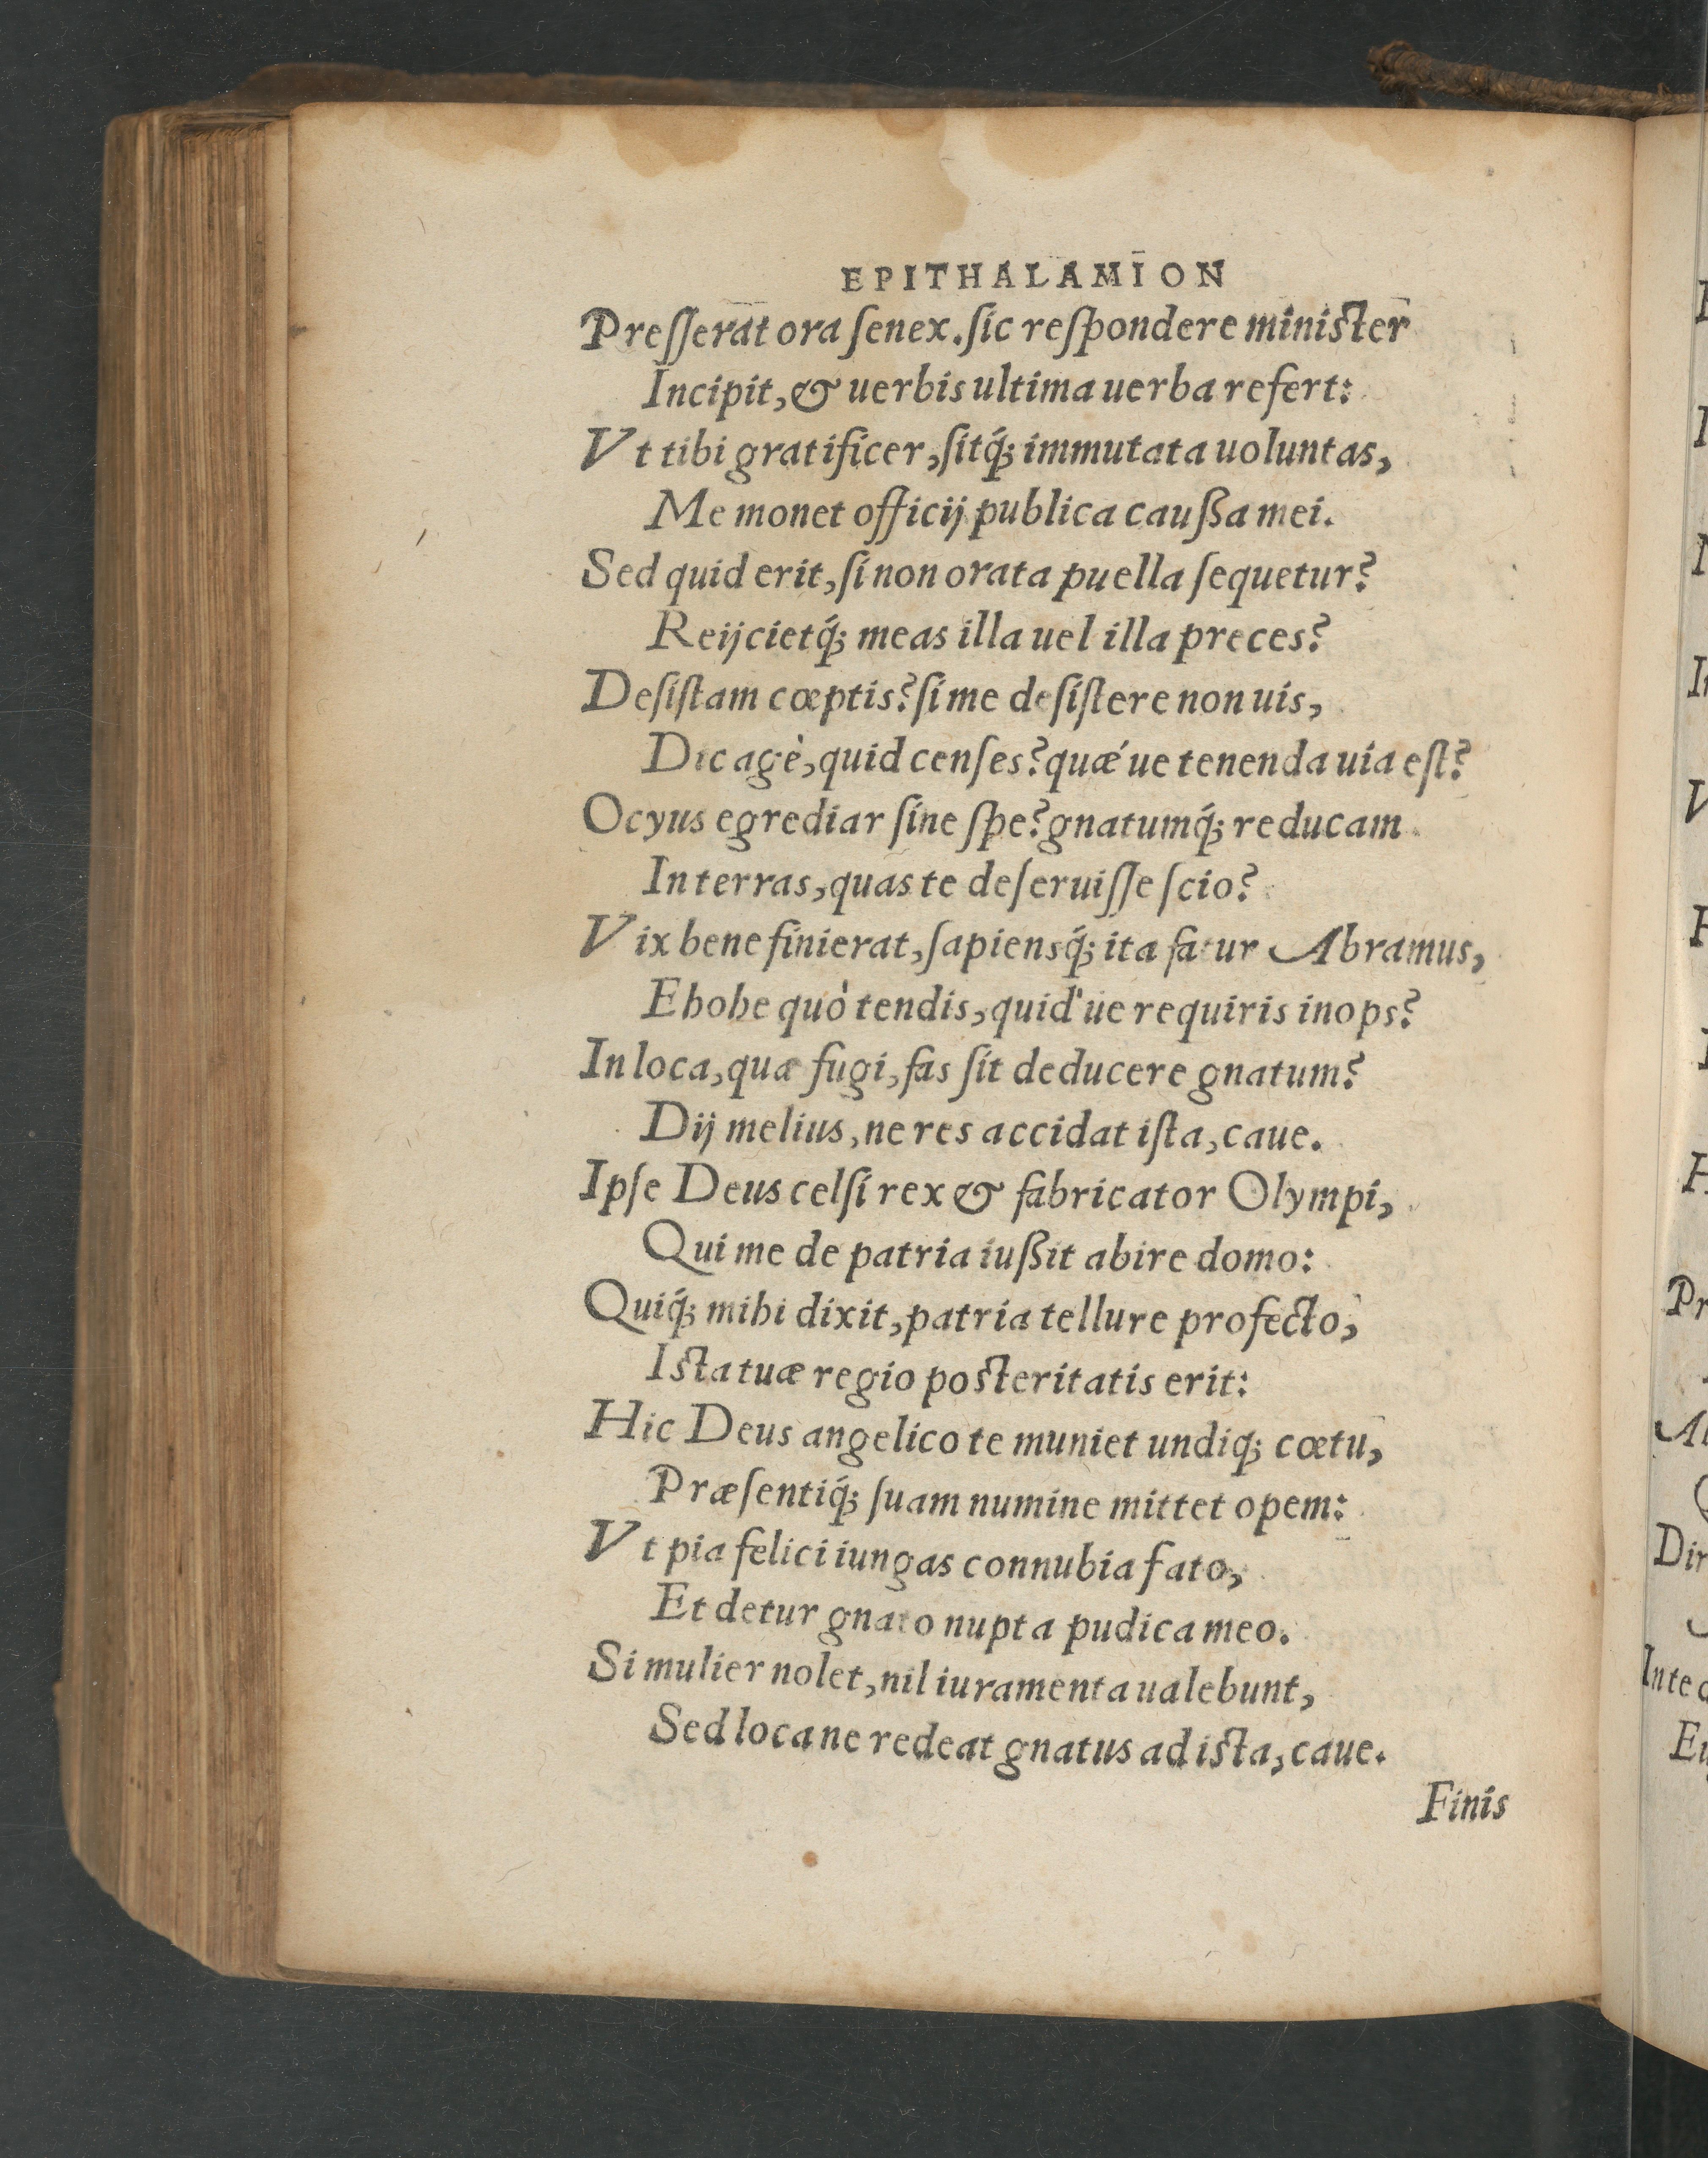 EPITHALAMION
Preſſerat ora ſenex. ſic reſpondere miniſter
Incipit, & uerbis ultima uerba refert:
Vt tibi gratificer, ſitq́; immutata uoluntas,
Me monet officij publica caußa mei.
Sed quid erit, ſi non orata puella ſequetur?
Reijcietq́; meas illa uel illa preces?
Deſiſtam cœptis? ſi me deſiſtere non uis,
Dic agè, quid cenſes? quǽ ue tenenda uia eſt?
Ocyus egrediar ſine ſpe? gnatumq́; reducam
In terras, quas te deſeruiſſe ſcio?
Vix bene finierat, ſapiensq́; ita fatur Abramus,
Ehohe quò tendis, quid'ue requiris inops?
In loca, quæ fugi, fas ſit deducere gnatum?
Dij melius, ne res accidat iſta, caue.
Ipſe Deus celſi rex & fabricator Olympi,
Qui me de patria iußit abire domo:
Quiq́; mihi dixit, patria tellure profecto,
Iſta tuæ regio poſteritatis erit:
Hic Deus angelico te muniet undiq; cœtu,
Præſentiq́; ſuam numine mittet opem:
Vt pia felici iungas connubia fato,
Et detur gnato nupta pudica meo.
Si mulier nolet, nil iuramenta ualebunt,
Sed loca ne redeat gnatus ad iſta, caue.
Finis